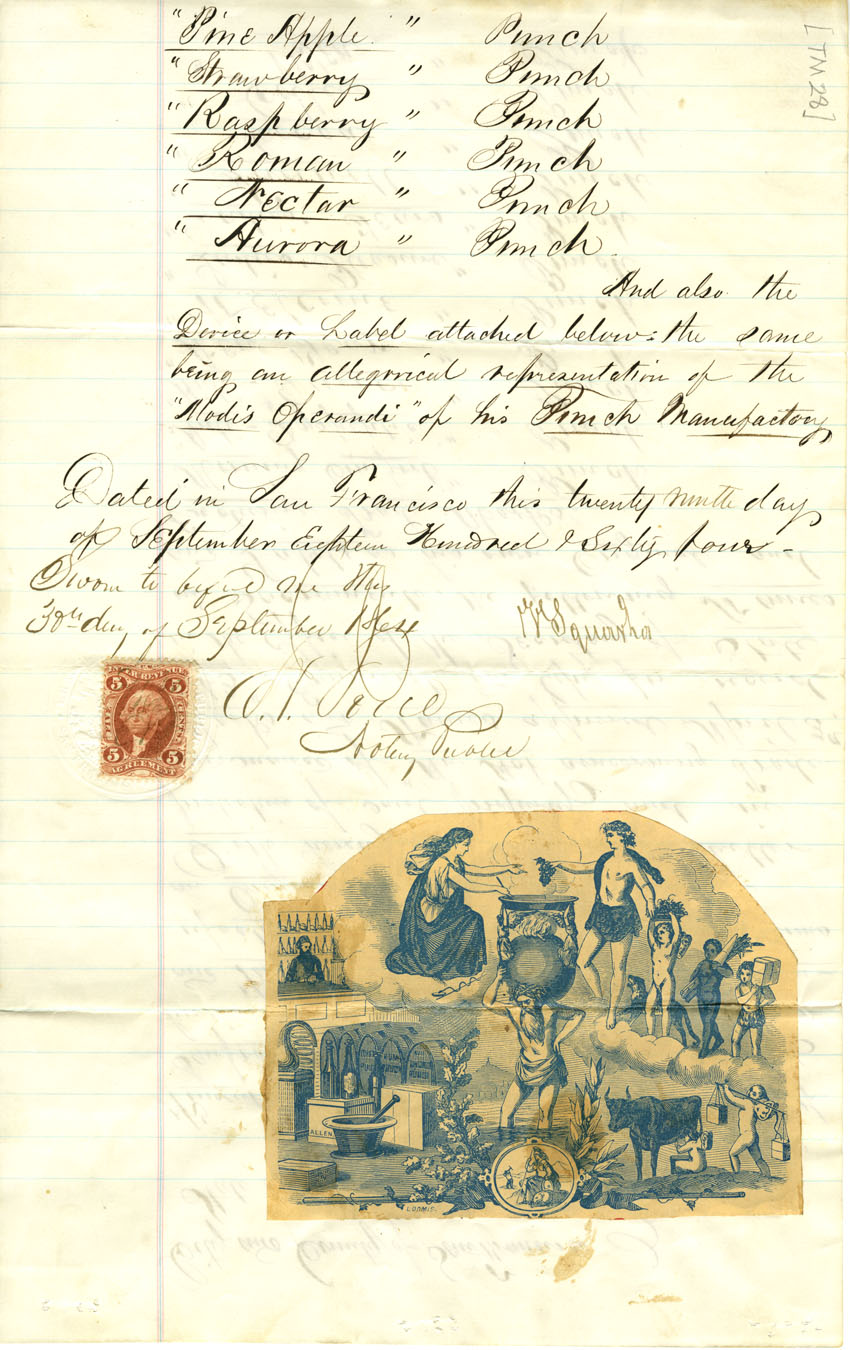 "Pine Apple " Punch
"Strawberry " Punch
"Raspberry " Punch
"Roman " Punch
"Nectar " Punch
"Aurora " Punch.
And also the
Device or Label attached below: the same
being an allegorical representation of the
"Modis Operandi" of his Punch Manufactory
Dated in San Francisco this twenty ninth day
of September Eighteen Hundred & Sixty four -
Sworn to before me this
30th day of September 1864
Squarza
Notary Public
[TM 28]
U.S.
INTER. REVENUE
5 5
FIVE CENTS
5 5
AGREEMENT
ALLEN
LOOMIS.